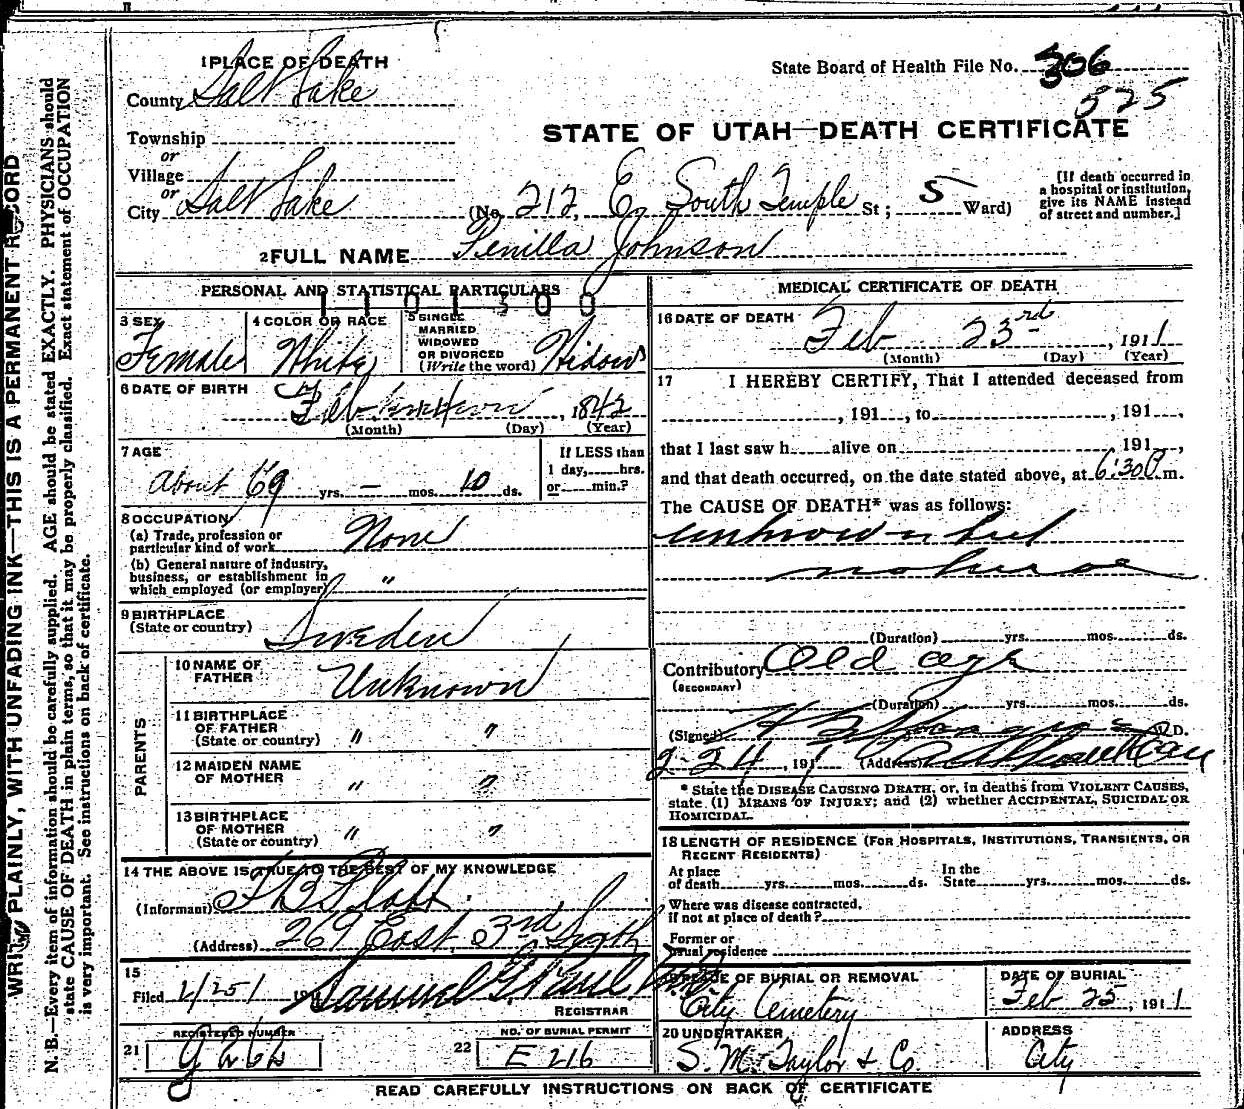 1 PLACE OF DEATH
State Board of Health File No. 306
325
County Salt Lake
STATE OF UTAH—DEATH CERTIFICATE
Township
or
Village
or
City Salt Lake (No. 212, E. South Temple St; 5 Ward)
[If death occurred in
a hospital or institution,
give its NAME instead
of street and number.]
2 FULL NAME Penilla Johnson
PERSONAL AND STATISTICAL PARTICULARS
1101300
3 SEX
Female
4 COLOR OR RACE
White
5 SINGLE
MARRIED
WIDOWED
OR DIVORCED
(Write the word) Widow
6 DATE OF BIRTH
Feb unknown, 1842
(Month) (Day) (Year)
7 AGE
About 69 yrs. — mos. 10 ds.
If LESS than
1 day, hrs.
or min.?
8 OCCUPATION
(a) Trade, profession or
particular kind of work None
(b) General nature of industry,
business, or establishment in
which employed (or employer) "
9 BIRTHPLACE
(State or country) Sweden
PARENTS
10 NAME OF
FATHER Unknown
11 BIRTHPLACE
OF FATHER
(State or country) " "
12 MAIDEN NAME
OF MOTHER " "
13 BIRTHPLACE
OF MOTHER
(State or country) " "
14 THE ABOVE IS TRUE TO THE BEST OF MY KNOWLEDGE
(Informant) F B Platt
(Address) 269 East 3rd South
15
Filed 2/25/ 191 Samuel G. Paul
REGISTRAR
REGISTERED NUMBER
21
NO. OF BURIAL PERMIT
22 E 216
MEDICAL CERTIFICATE OF DEATH
16 DATE OF DEATH
Feb 23rd, 1911
(Month) (Day) (Year)
17 I HEREBY CERTIFY, That I attended deceased from
, 191 , to , 191 ,
that I last saw h alive on , 191 ,
and that death occurred, on the date stated above, at 6:30 P.m.
The CAUSE OF DEATH* was as follows:
unknown but
(Duration) yrs. mos. ds.
Contributory Old age
(SECONDARY)
(Duration) yrs. mos. ds.
(Signed) M.D.
2-24, 191 (Address)
* State the DISEASE CAUSING DEATH, or, in deaths from VIOLENT CAUSES,
state (1) MEANS OF INJURY; and (2) whether ACCIDENTAL, SUICIDAL OR
HOMICIDAL.
18 LENGTH OF RESIDENCE (FOR HOSPITALS, INSTITUTIONS, TRANSIENTS, OR
RECENT RESIDENTS)
At place
of death yrs. mos. ds.
In the
State yrs. mos. ds.
Where was disease contracted,
if not at place of death?
Former or
usual residence
19 PLACE OF BURIAL OR REMOVAL
City Cemetery
DATE OF BURIAL
Feb 25, 1911
20 UNDERTAKER
S. M. Taylor & Co.
ADDRESS
City
READ CAREFULLY INSTRUCTIONS ON BACK OF CERTIFICATE
WRITE PLAINLY, WITH UNFADING INK—THIS IS A PERMANENT RECORD
N. B.—Every item of information should be carefully supplied. AGE should be stated EXACTLY. PHYSICIANS should
state CAUSE OF DEATH in plain terms, so that it may be properly classified. Exact statement of OCCUPATION
is very important. See instructions on back of certificate.